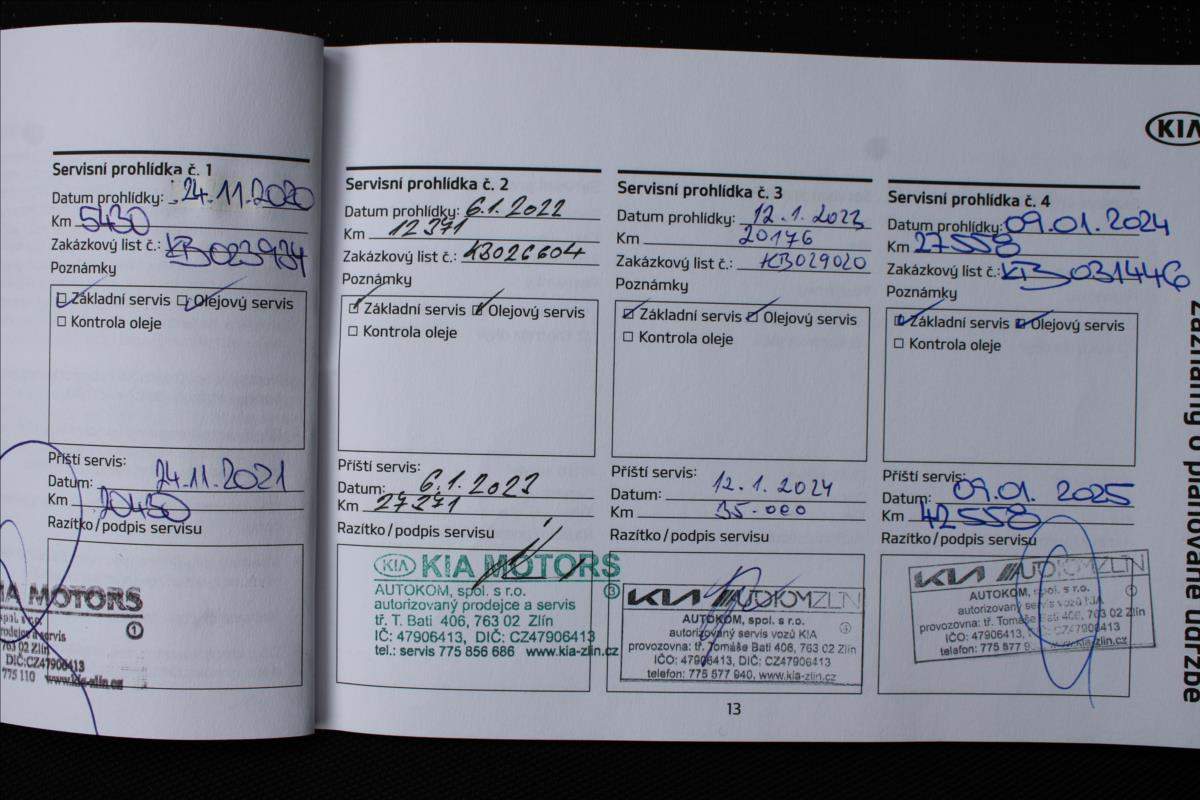 KIA
Servisní prohlídka č. 1
Datum prohlídky: 24.11.2020
Km 5430
Zakázkový list č.: KB023934
Poznámky
Základní servis Olejový servis
Kontrola oleje
Příští servis:
Datum: 24.11.2021
Km 20430
Razítko/podpis servisu
KIA MOTORS
spol. s r.o.
prodejce a servis
763 02 Zlín
DIČ:CZ47906413
775 110 www.kia-zlin.cz
1
Servisní prohlídka č. 2
Datum prohlídky: 6.1.2022
Km 12371
Zakázkový list č.: KB026604
Poznámky
Základní servis Olejový servis
Kontrola oleje
Příští servis:
Datum: 6.1.2023
Km 27371
Razítko/podpis servisu
KIA KIA MOTORS
AUTOKOM, spol. s r.o. 3
autorizovaný prodejce a servis
tř. T. Bati 406, 763 02 Zlín
IČ: 47906413, DIČ: CZ47906413
tel.: servis 775 856 686 www.kia-zlin.cz
Servisní prohlídka č. 3
Datum prohlídky: 12.1.2023
Km 20176
Zakázkový list č.: KB029020
Poznámky
Základní servis Olejový servis
Kontrola oleje
Příští servis:
Datum: 12.1.2024
Km 35.000
Razítko/podpis servisu
KIA AUTOKOM ZLÍN
AUTOKOM, spol. s r.o.
autorizovaný servis vozů KIA
provozovna: tř. Tomáše Bati 406, 763 02 Zlín
IČO: 47906413, DIČ: CZ47906413
telefon: 775 577 940, www.kia-zlin.cz
Servisní prohlídka č. 4
Datum prohlídky: 09.01.2024
Km 27558
Zakázkový list č.: KB031446
Poznámky
Základní servis Olejový servis
Kontrola oleje
Příští servis:
Datum: 09.01.2025
Km 42558
Razítko/podpis servisu
KIA AUTOKOM ZLÍN
AUTOKOM, spol. s r.o.
autorizovaný servis vozů KIA
provozovna: tř. Tomáše Bati 406, 763 02 Zlín
IČO: 47906413, DIČ: CZ47906413
telefon: 775 577 www.kia-zlin.cz
Záznamy o plánované údržbě
13